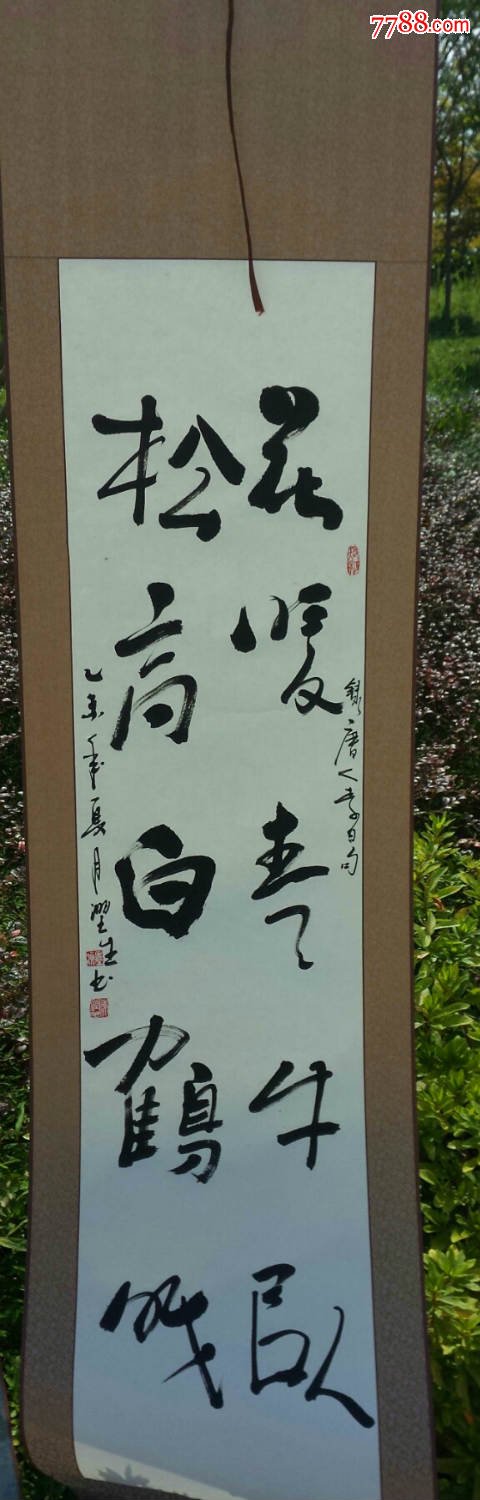 7788.com
錄唐人李白句
花暖青牛臥
松高白鶴眠
乙未年夏月生书